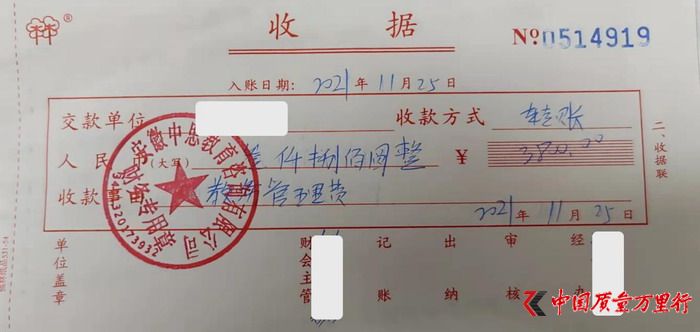 收据
№0514919
入账日期: 2021年11月25日
交款单位 收款方式 转账
人民币(大写) 叁仟捌佰圆整 ¥ 3800.00
收款事 教务管理费
2021年11月25日
二、收据联
单位盖章 财会主管 记账 出纳 审核 经办
安徽中思教育咨询有限公司
财务专用章
中国质量万里行